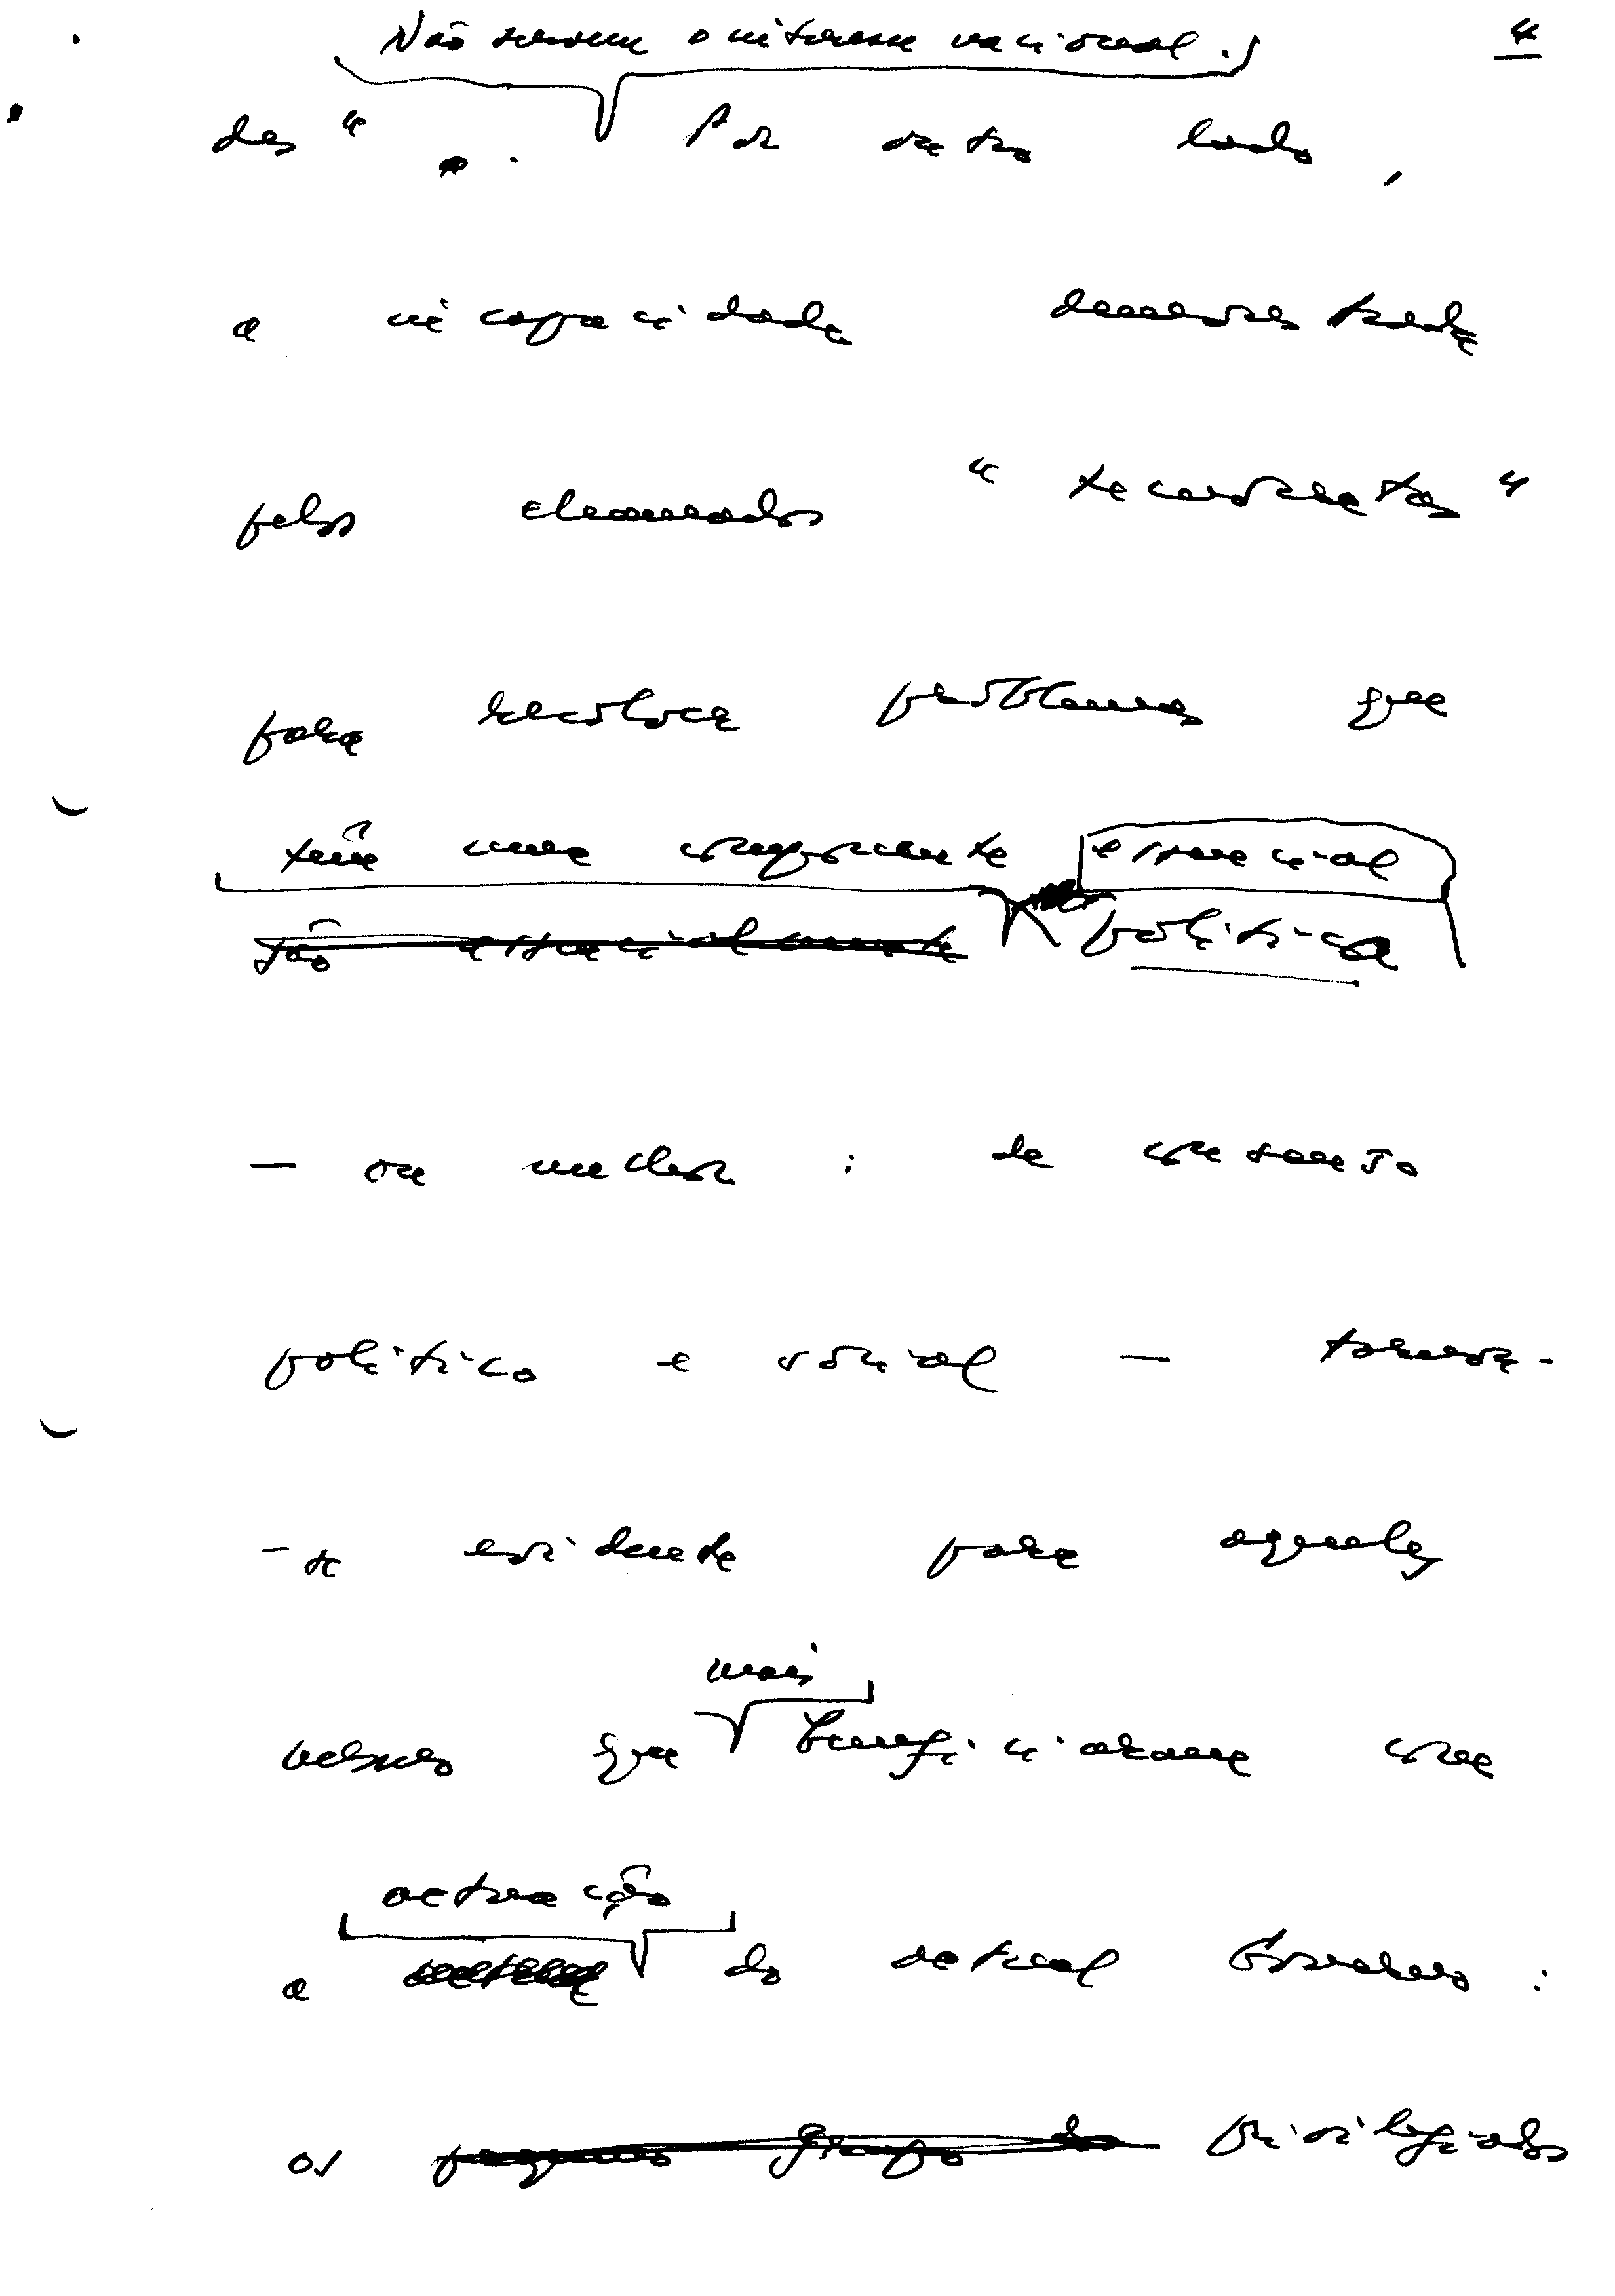 Não servem o interesse nacional.
4
des". Por outro lado,
a incapacidade demonstrada
pelos chamados "tecnocratas"
para resolver problemas que
têm uma componente essencial
são essencialmente política
— ou melhor: de consenso
político e social — tornou-
-se evidente para aqueles
mais
mesmos que beneficiaram com
actuação
a do actual Governo:
os pequenos grupos de privilegiados